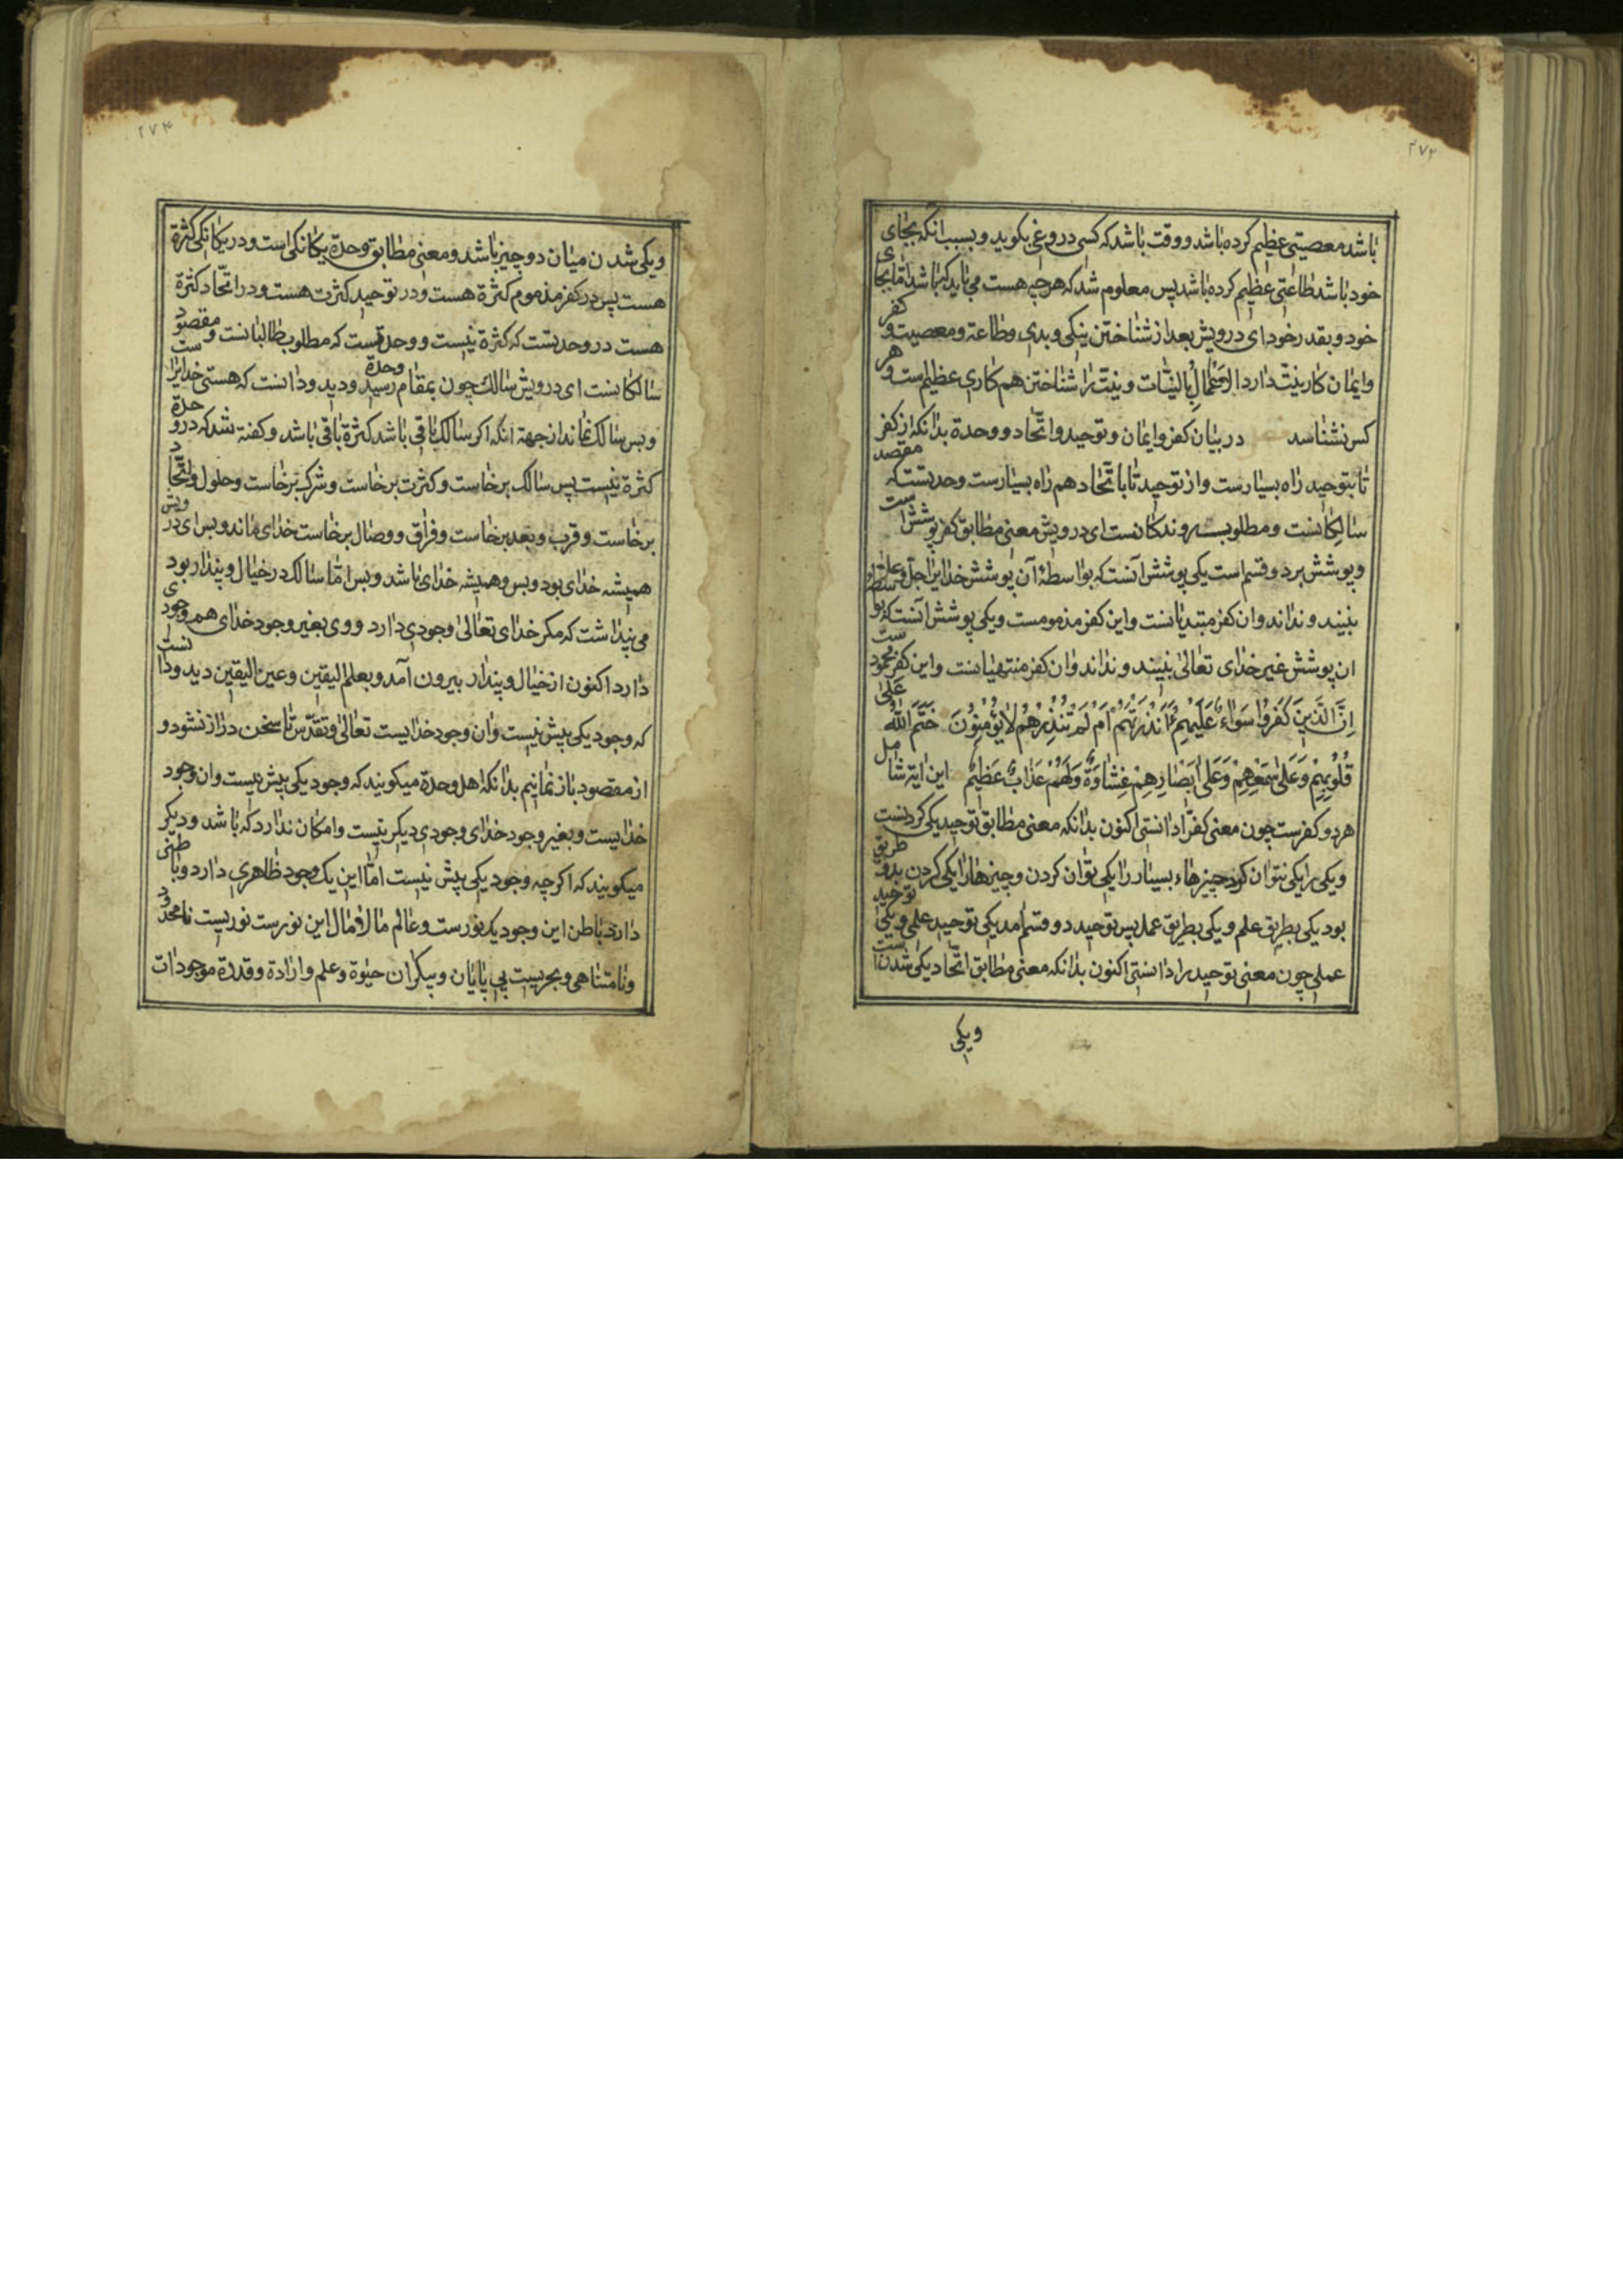 ۲۷۳
باشد معصیتی عظیم کرده باشد و وقت باشد که کسی دروغی بکوید و بسبب انکه بجای
خود باشد طاعتی عظیم کرده باشد پس معلوم شد که هرچه هست می باید که باشد اما بجای
خود و بقدر خود ای درویش بعد از شناختن نیکی و بدی و طاعة و معصیت و کفر
وایمان کار نیت دارد الاعمال بالنیّات و نیت را شناختن هم کاری عظیم است و هر
کس نشناسد در بیان کفر وایمان و توحید واتّحاد و وحدة بدانکه از کفر
تا بتوحید راه بسیارست واز توحید تا باتّحاد هم راه بسیارست وحدتست که مقصد
سالکانست و مطلوب روندکانست ای درویش معنی مطابق کفر پوشش است
و پوشش بر دو قسم است یکی پوشش آنست که بواسطهٔ آن پوشش خدایرا جلّ وعلا
نبینند و ندانند وان کفر مبتدیانست واین کفر مذمومست و یکی پوشش آنست که بواسطهٔ
ان پوشش غیر خدای تعالی نبینند و ندانند وان کفر منتهیانست واین کفر محمودست
اِنَّ الَّذِينَ كَفَرُوا سَوَاءٌ عَلَيْهِمْ ءَاَنْذَرْتَهُمْ اَمْ لَمْ تُنْذِرْهُمْ لَا يُؤْمِنُونَ خَتَمَ اللّٰهُ عَلٰی
قُلُوبِهِمْ وَعَلٰی سَمْعِهِمْ وَعَلٰی اَبْصَارِهِمْ غِشَاوَةٌ وَلَهُمْ عَذَابٌ عَظِيمٌ این ایة شامل
هر دو کفرست چون معنی کفر را دانستی اکنون بدانکه معنی مطابق توحید یکی کردنست
و یکی را یکی نتوان کرد چیزهاء بسیار را یکی توان کردن و چیزها را یکی کردن بدو طریق
بود یکی بطریق علم و یکی بطریق عمل پس توحید دو قسم امد یکی توحید علمی و یکی توحید
عملی چون معنی توحید را دانستی اکنون بدانکه معنی مطابق اتّحاد یکی شدنست
ویکی
۲۷۴
ویکی شدن میان دو چیز باشد و معنی مطابق وحدة یکانکی است و در یکانکی کثرة
هست پس در کفر مذموم کثرة هست و در توحید کثرت هست و در اتّحاد کثرة
هست در وحدتست که کثرة نیست و وحدتست که مطلوب طالبانست و مقصود
سالکانست ای درویش سالک چون بمقام وحدة رسید و دید و دانست که هستی خدایراست
وبس سالک نماند از جهة انکه اکر سالک باقی باشد کثرة باقی باشد و کفته شد که در وحدة
کثرة نیست پس سالک برخاست و کثرت برخاست و شرک برخاست و حلول و اتّحاد
برخاست و قرب و بعد برخاست و فراق و وصال برخاست خدای ماند وبس ای درویش
همیشه خدای بود وبس و همیشه خدای باشد وبس امّا سالک در خیال و پندار بود
می پنداشت که مکر خدای تعالی وجودی دارد و وی بغیر وجود خدای هم وجودی
دارد اکنون از خیال و پندار بیرون آمد و بعلم الیقین و عین الیقین دید و دانست
که وجود یکی بیش نیست وان وجود خدایست تعالی و تقدّس تا سخن دراز نشود و
از مقصود باز نمانیم بدانکه اهل وحدة میکویند که وجود یکی بیش نیست وان وجود
خدایست و بغیر وجود خدای وجودی دیکر نیست وامکان ندارد که باشد و دیکر
میکویند که اکرچه وجود یکی بیش نیست امّا این یک وجود ظاهری دارد و باطنی
دارد باطن این وجود یک نورست و عالم مالامال این نورست نوریست نامحدود
و نامتناهی و بحریست بی پایان و بیکران حیوة و علم و ارادة و قدرة موجودات